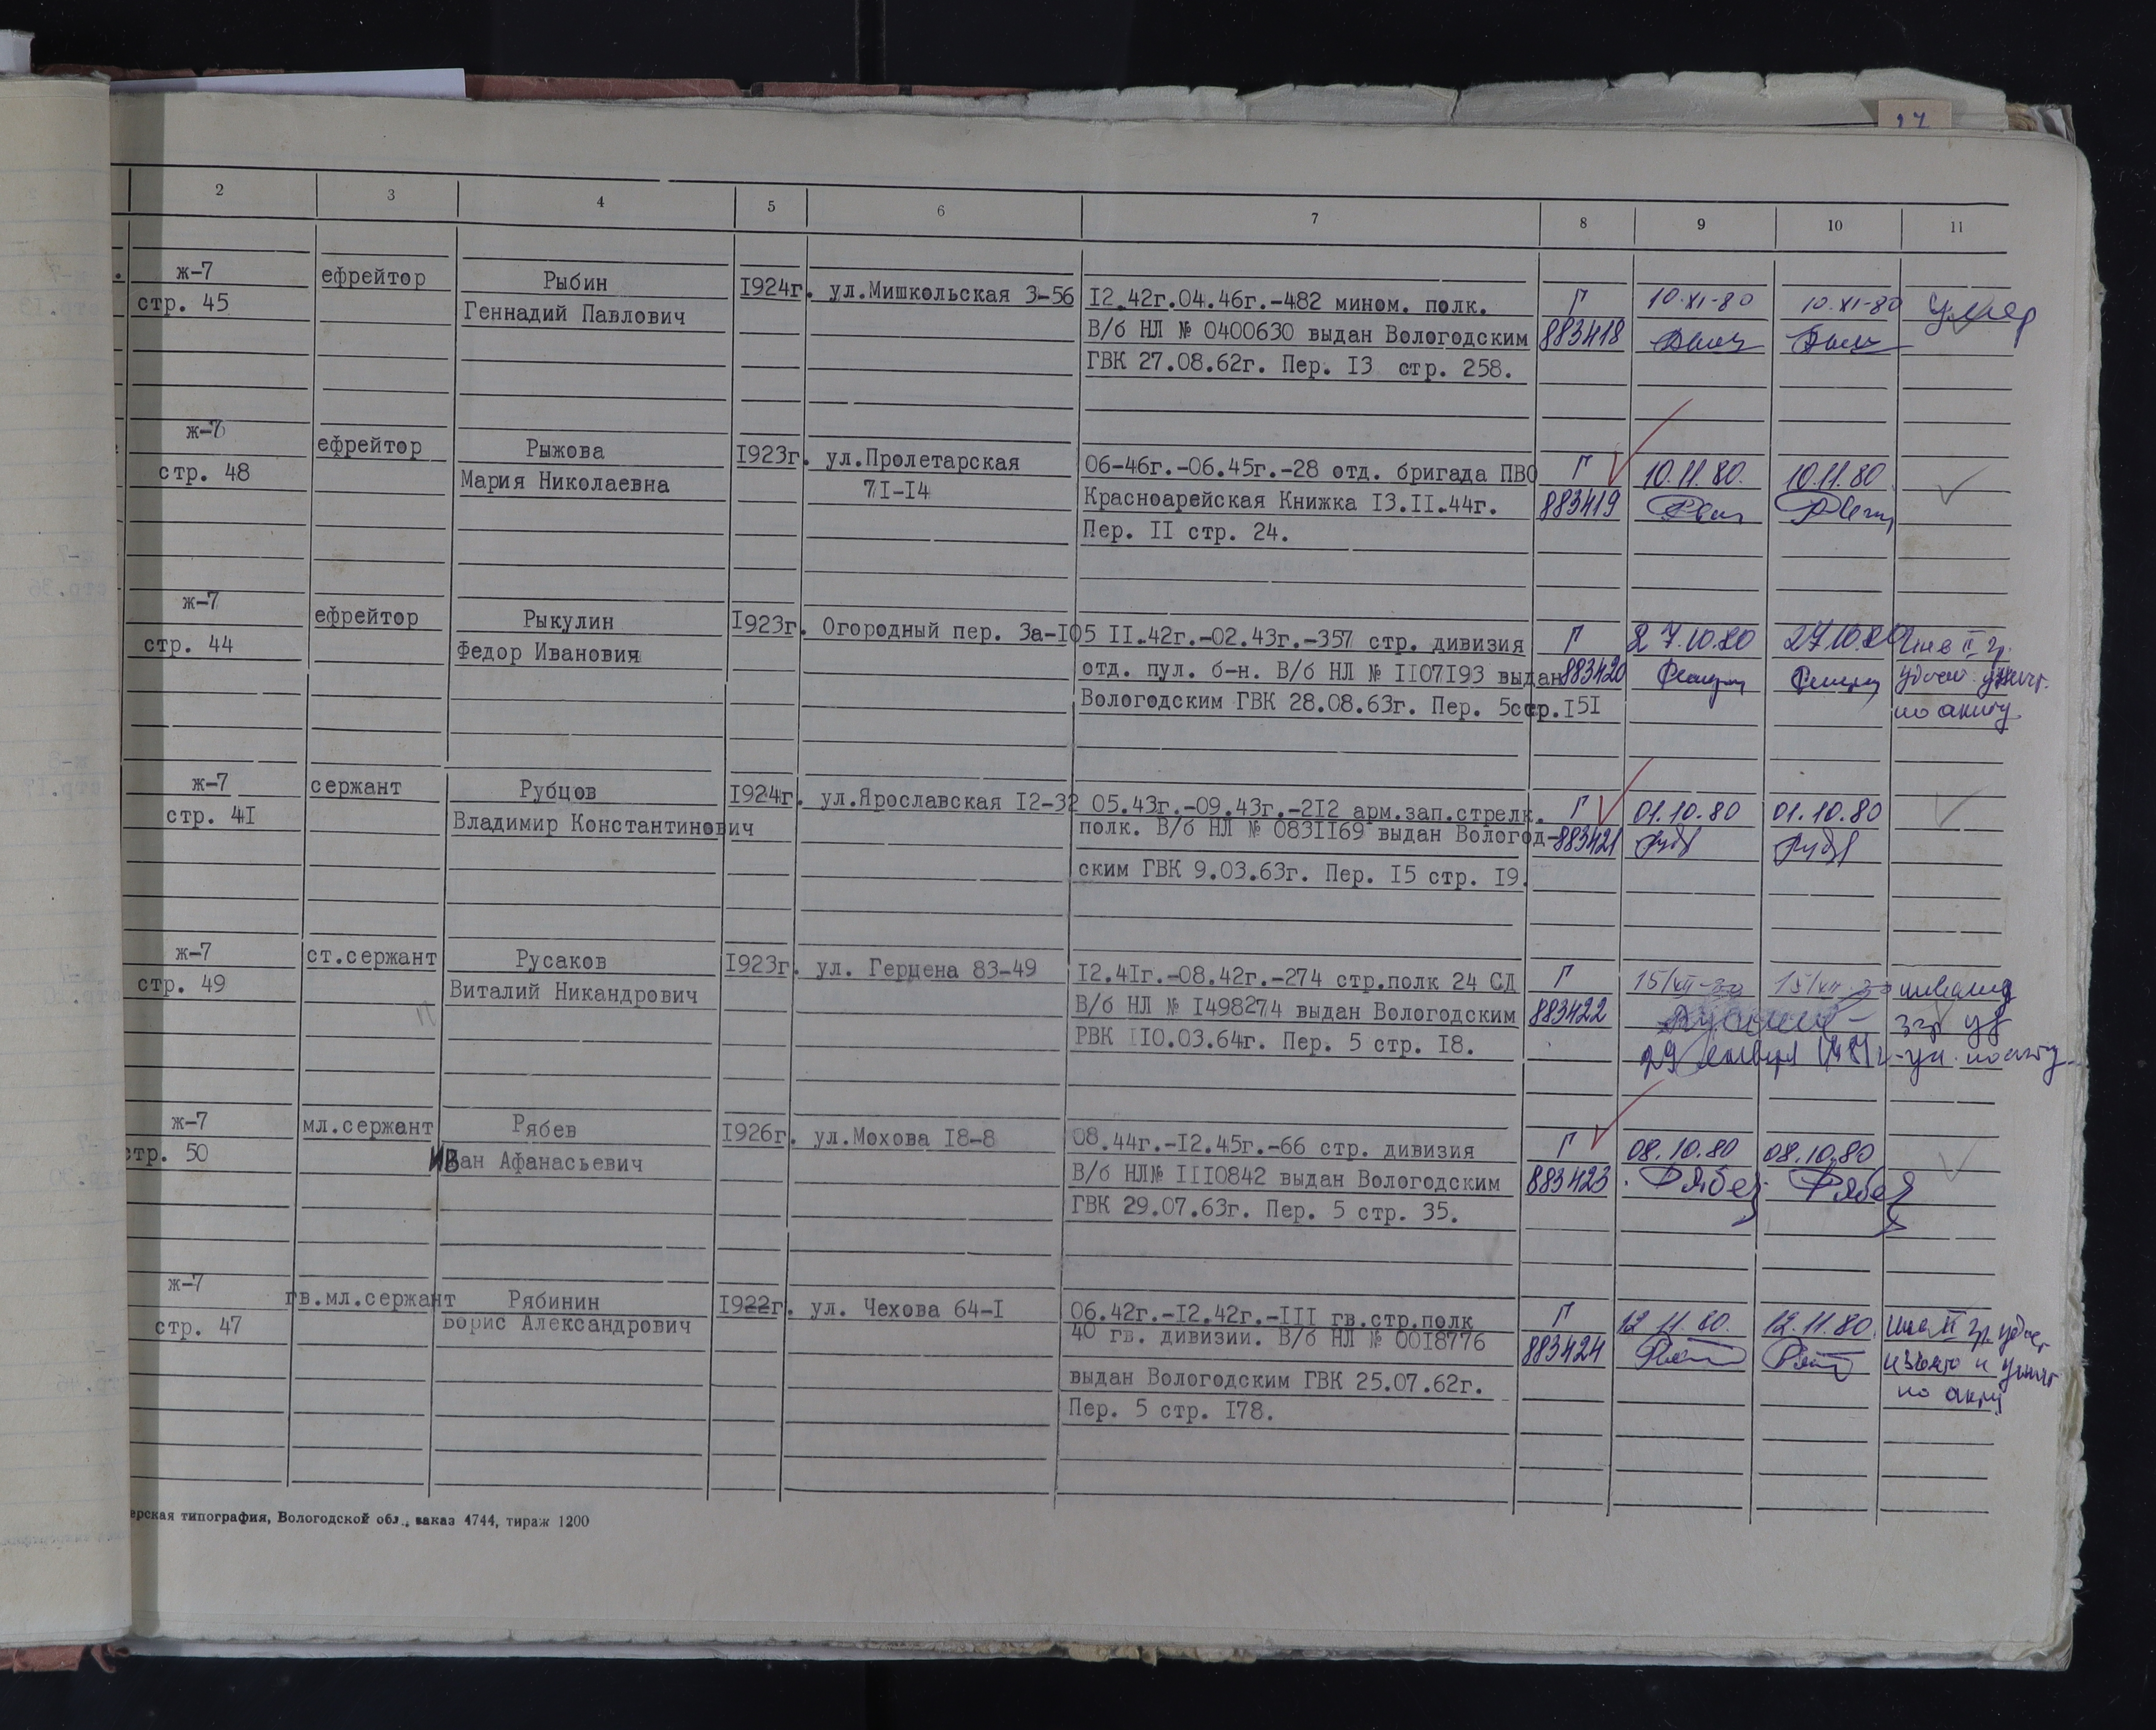 2 3 4 5 6 7 8 9 10 11
ж-7 ефрейтор Рыбин 1924г. ул.Мишкольская 3-56 12.42г.04.46г.-482 мином. полк. Г 10.XI-80 10.XI-80 умер
стр. 45 Геннадий Павлович В/б НЛ № 0400630 выдан Вологодским 883418
ГВК 27.08.62г. Пер. 13 стр. 258.
ж-7 ефрейтор Рыжова 1923г. ул.Пролетарская 06-46г.-06.45г.-28 отд. бригада ПВО Г 10.11.80. 10.11.80
стр. 48 Мария Николаевна 71-14 Красноарейская Книжка 13.11.44г. 883419
Пер. II стр. 24.
ж-7 ефрейтор Рыкулин 1923г. Огородный пер. 3а-105 11.42г.-02.43г.-357 стр. дивизия Г 27.10.80 27.10.80 Инв II гр.
стр. 44 Федор Иванович отд. пул. б-н. В/б НЛ № 1107193 выдан 883420 удост. уничт.
Вологодским ГВК 28.08.63г. Пер. 5 стр.151 по акту
ж-7 сержант Рубцов 1924г. ул.Ярославская 12-32 05.43г.-09.43г.-212 арм.зап.стрелк. Г 01.10.80 01.10.80
стр. 41 Владимир Константинович полк. В/б НЛ № 0831169 выдан Вологод- 883421 Рубц Рубц
ским ГВК 9.03.63г. Пер. 15 стр. 19.
ж-7 ст.сержант Русаков 1923г. ул. Герцена 83-49 12.41г.-08.42г.-274 стр.полк 24 СД Г 15/XII-80 15/XII-80 инвалид
стр. 49 Виталий Никандрович В/б НЛ № 1498274 выдан Вологодским 883422 3 гр уд
РВК 110.03.64г. Пер. 5 стр. 18. 29 января 1981г - ун. по акту
ж-7 мл.сержант Рябев 1926г. ул.Мохова 18-8 08.44г.-12.45г.-66 стр. дивизия Г 08.10.80 08.10.80
стр. 50 Иван Афанасьевич В/б НЛ№ 1110842 выдан Вологодским 883423 Рябев Рябев
ГВК 29.07.63г. Пер. 5 стр. 35.
ж-7 гв.мл.сержант Рябинин 1922г. ул. Чехова 64-1 06.42г.-12.42г.-111 гв.стр.полк Г 12.11.80. 12.11.80. инв II гр. удост
стр. 47 Борис Александрович 40 гв. дивизии. В/б НЛ № 0018776 883424 изъято и уничт
выдан Вологодским ГВК 25.07.62г. по акту
Пер. 5 стр. 178.
ерская типография, Вологодской обл., заказ 4744, тираж 1200